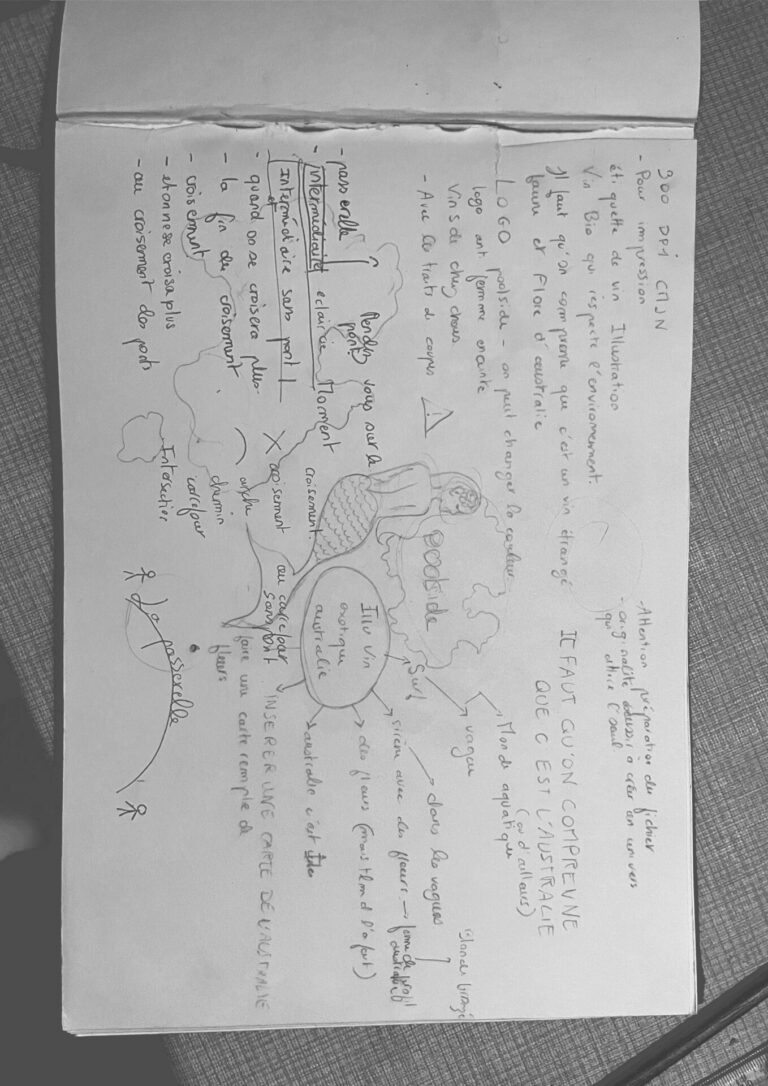 300 DPI CMJN
- Pour impression
étiquette de vin Illustration
Vin Bio qui respecte l'environnement.
Il faut qu'on comprenne que c'est un vin étrangé
faune et Flore d'australie
LOGO poolside - on peut changer la couleur
logo ant femme enceinte
Vins de chez nous
- Avec les traits de coupes
- Attention préparation du fichier
- originalité réussir à créer un univers
qui attire l'oeil
IL FAUT QU'ON COMPRENNE
QUE C EST L'AUSTRALIE
(ou d'ailleurs)
Monde aquatique
vague
Surf
dans les vagues
sirène avec des fleurs
des fleurs (mais
australie c'est
poolside
Illu Vin
exotique
australie
INSERER UNE CARTE DE L'AUSTRALIE
faire une carte remplie de
fleurs
Rendez vous sur le
pont
- passerelle
- intermédiaire eclaircie Moment
Intermédiaire sans pont !
- quand on se croisera plus
- la fin du croisement
- croisement
- et on ne se croisa plus
- au croisement des ponts
croisement
croisement
arche
chemin
carrefour
Intersection
au carrefour
sans pont
La passerelle